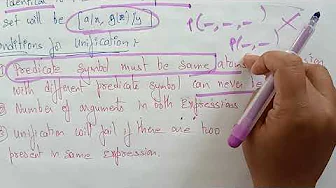 Identical to
set will be [a/x, g(x)/y]
P(—, —, — )
P(—, — )
Conditions for unification :-
① Predicate symbol must be same atoms
with different predicate symbol can never be
② Number of arguments in both Expressions
③ Unification will fail if there are two
present in same expression.